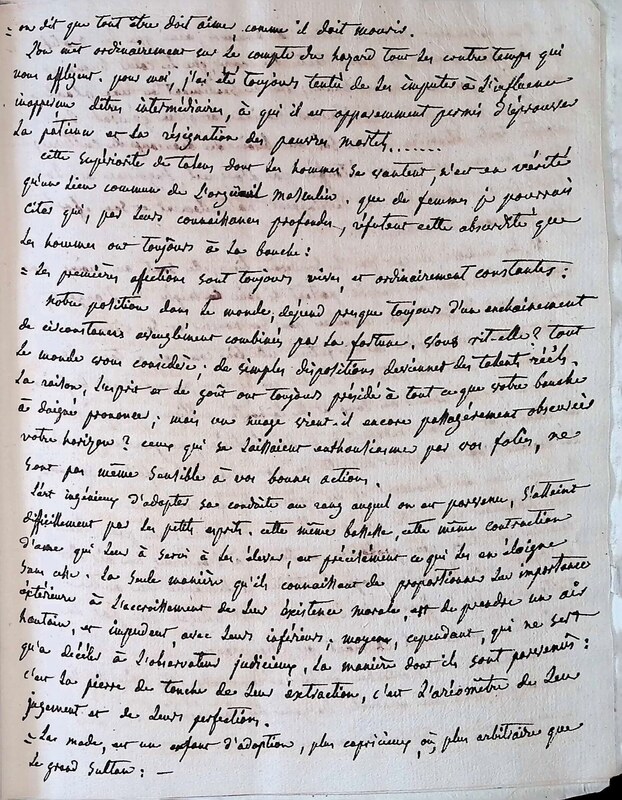 = on dit que tout être doit aimer, comme il doit mourir.
L'on met ordinairement sur le compte du hazard tout les contre temps qui
nous affligent. pour moi, j'ai été toujours tenté de les imputer à L'influence
inapperçue d'êtres intermédiaires, à qui il est apparemment permis d'éprouver
La patience et La résignation des pauvres mortels.......
cette supériorité de talens dont Les hommes se vantent, n'est en vérité
qu'un Lieu commun de L'orgueil masculin. que de femmes je pourrais
citer qui, par Leurs connaissances profondes, réfutent cette absurdité que
Les hommes ont toujours à La bouche :
= Les premières affections sont toujours vives, et ordinairement constantes :
notre position dans le monde, dépend presque toujours d'un enchainement
de circonstances aveuglément combinées par La fortune. vous rit-elle ? tout
Le monde vous considère ; de simples dispositions deviennent des talents réels.
La raison, L'esprit et le goût ont toujours présidé à tout ce que votre bouche
à daigné prononcer ; mais un nuage vient-il encore passagérement obscurcir
votre horizon ? ceux qui se Laissaient enthousiasmer par vos folies, ne
sont pas même sensible à vos bonnes actions.
L'art ingénieux d'adapter sa conduite au rang auquel on est parvenu, s'atteint
difficillement par Les petits esprits. cette même bassesse, cette même contraction
d'ame qui Leur à servi à Les élever, est précisément ce qui Les en éloigne
sans cesse. La seule manière qu'ils connaissent de proportionner Leur importance
éxtérieure à L'accroissement de Leur éxistence morale, est de prendre un air
hautain, et impudent, avec Leurs inférieurs ; moyen, cependant, qui ne sert
qu'a déceler à L'observateur judicieux, La manière dont ils sont parvenus :
c'est La pierre de touche de Leur éxtraction, c'est L'aréomètre de Leur
jugement et de Leurs perfections.
= La mode, est un enfant d'adoption, plus capricieux, où, plus arbitraire que
Le grand Sultan : —